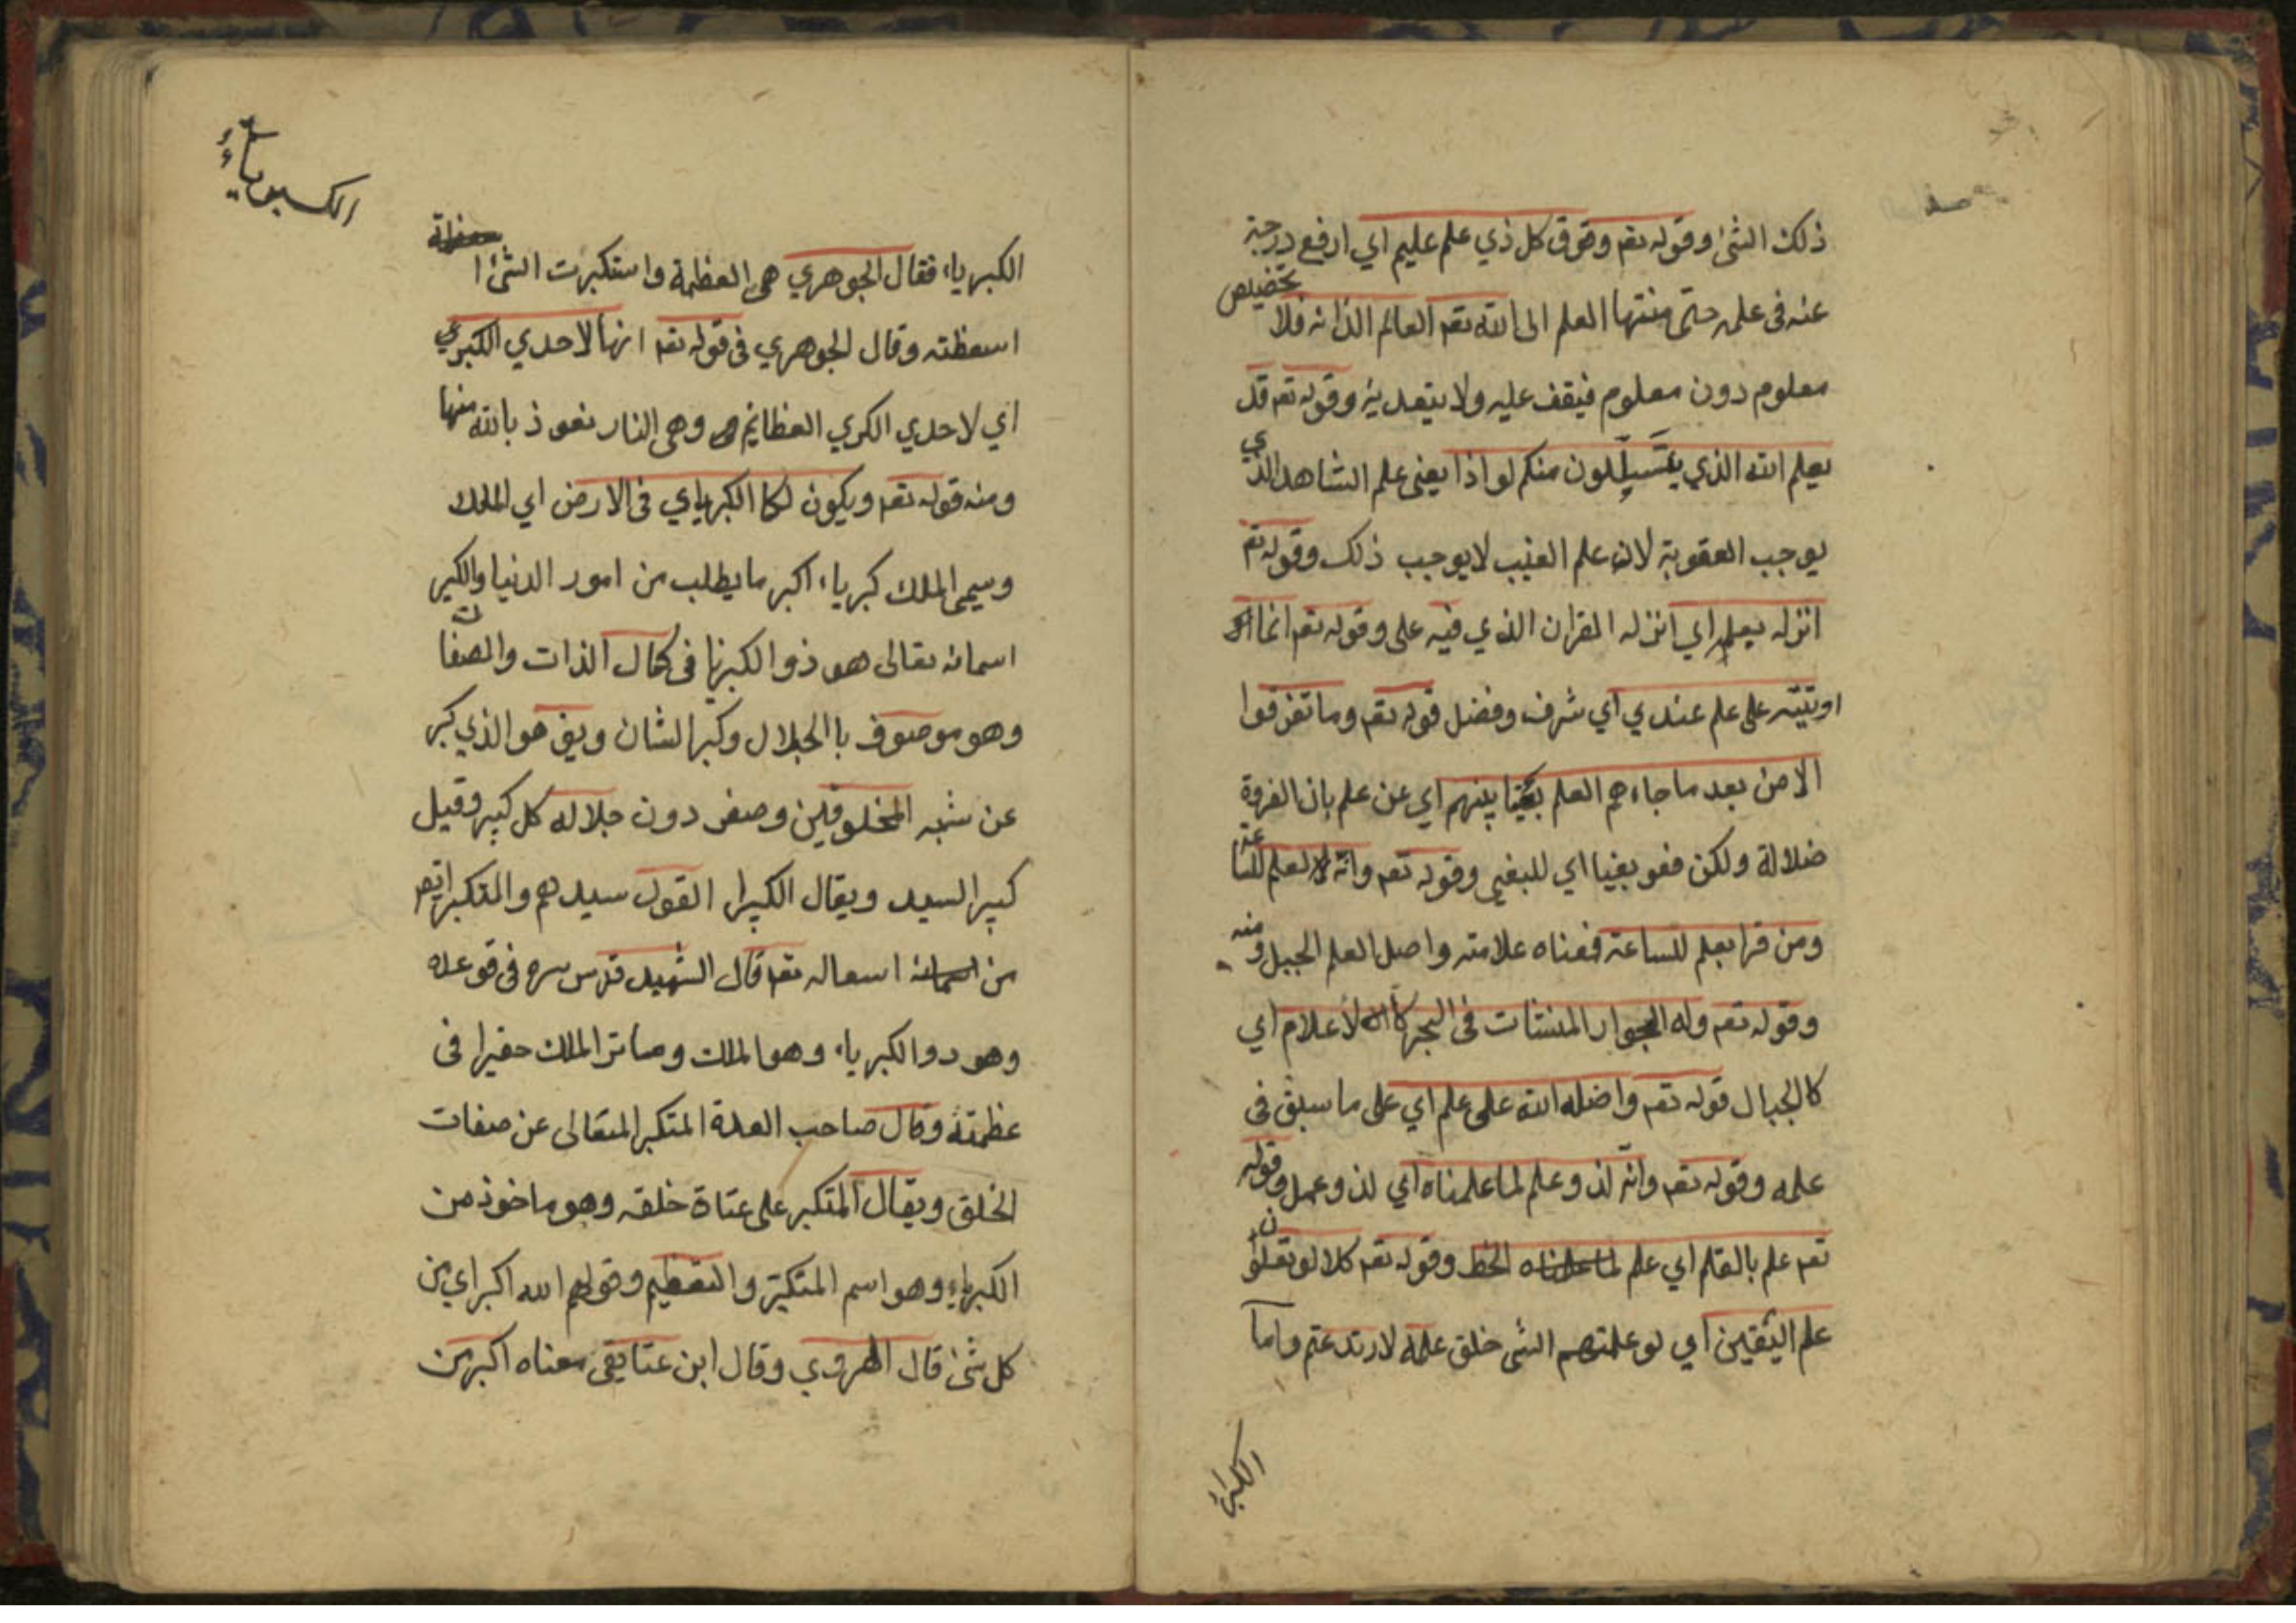 ذلك الشئ وقوله تعم وفوق كل ذي علم عليم اي ارفع درجة
عنه فى علمه حتى منتها العلم الى الله تعم العالم الذاته فلا تخصيص
معلوم دون معلوم فيقف عليه ولا يتعديه وقوله تعم قد
يعلم الله الذي يتسللون منكم لواذا يعنى علم الشاهد الذي
يوجب العقوبة لان علم الغيب لا يوجب ذلك وقوله تعم
انزله بعلمه اي انزله القران الذي فيه علمى وقوله تعم انما
اوتيته على علم عندي اي شرف وفضل قوله تعم وما تفرقوا
الا من بعد ما جاءهم العلم بغيا بينهم اي عن علم بان الفرقة
ضلالة ولكن فعو بغيا اي للبغى وقوله تعم وانه لعلم للساعة
ومن قرا بعلم للساعة فمعناه علامته واصل العلم الجبل ومنه
وقوله تعم وله الجوار المنشئات فى البحر كالاعلام اي
كالجبال قوله تعم واضله الله على علم اي على ما سبق فى
علمه وقوله تعم وانه لذو علم لما علمناه اي لذو عمل وقوله
تعم علم بالقلم اي علم الخط وقوله تعم كلا لو تعلمون
علم اليقين اي لو علمتهم الشى خلق علمه لارتدعتم واما
الكبرياء
الكبرياء
الكبرياء فقال الجوهري هى العظمة واستكبرت الشئ ا
اسعظته وقال الجوهري فى قوله تعم انها لاحدي الكبري
اي لاحدي الكري العظائم وهى النار نعوذ بالله منها
ومنه قوله تعم ويكون لكا الكبرياي فى الارض اي الملك
وسيمى الملك كبرياء اكبر ما يطلب من امور الدنيا والكبر
اسمائه تعالى هو ذو الكبريا فى كمال الذات والصفات
وهو موصوف باالجلال وكبر الشان ويق هو الذي كبر
عن شبه المخلوقين وصغر دون جلاله كل كبير وقيل
كبير السيد ويقال الكبيرا القول سيدهم والمتكبر ايضم
من اسماله تعم قال الشهيد قدس سره فى قوعده
وهو دو الكبرياء وهو الملك وماتر الملك حقيرا فى
عظمته وقال صاحب العدة المتكبر المتعالى عن صفات
الخلق ويقال المتكبر على عتاة خلقه وهو ماخوذ من
الكبرياء وهو اسم المتكبر والتعظيم وقولهم الله اكبر اي من
كل شئ قال الهروي وقال ابن عتايقى معناه اكبر من